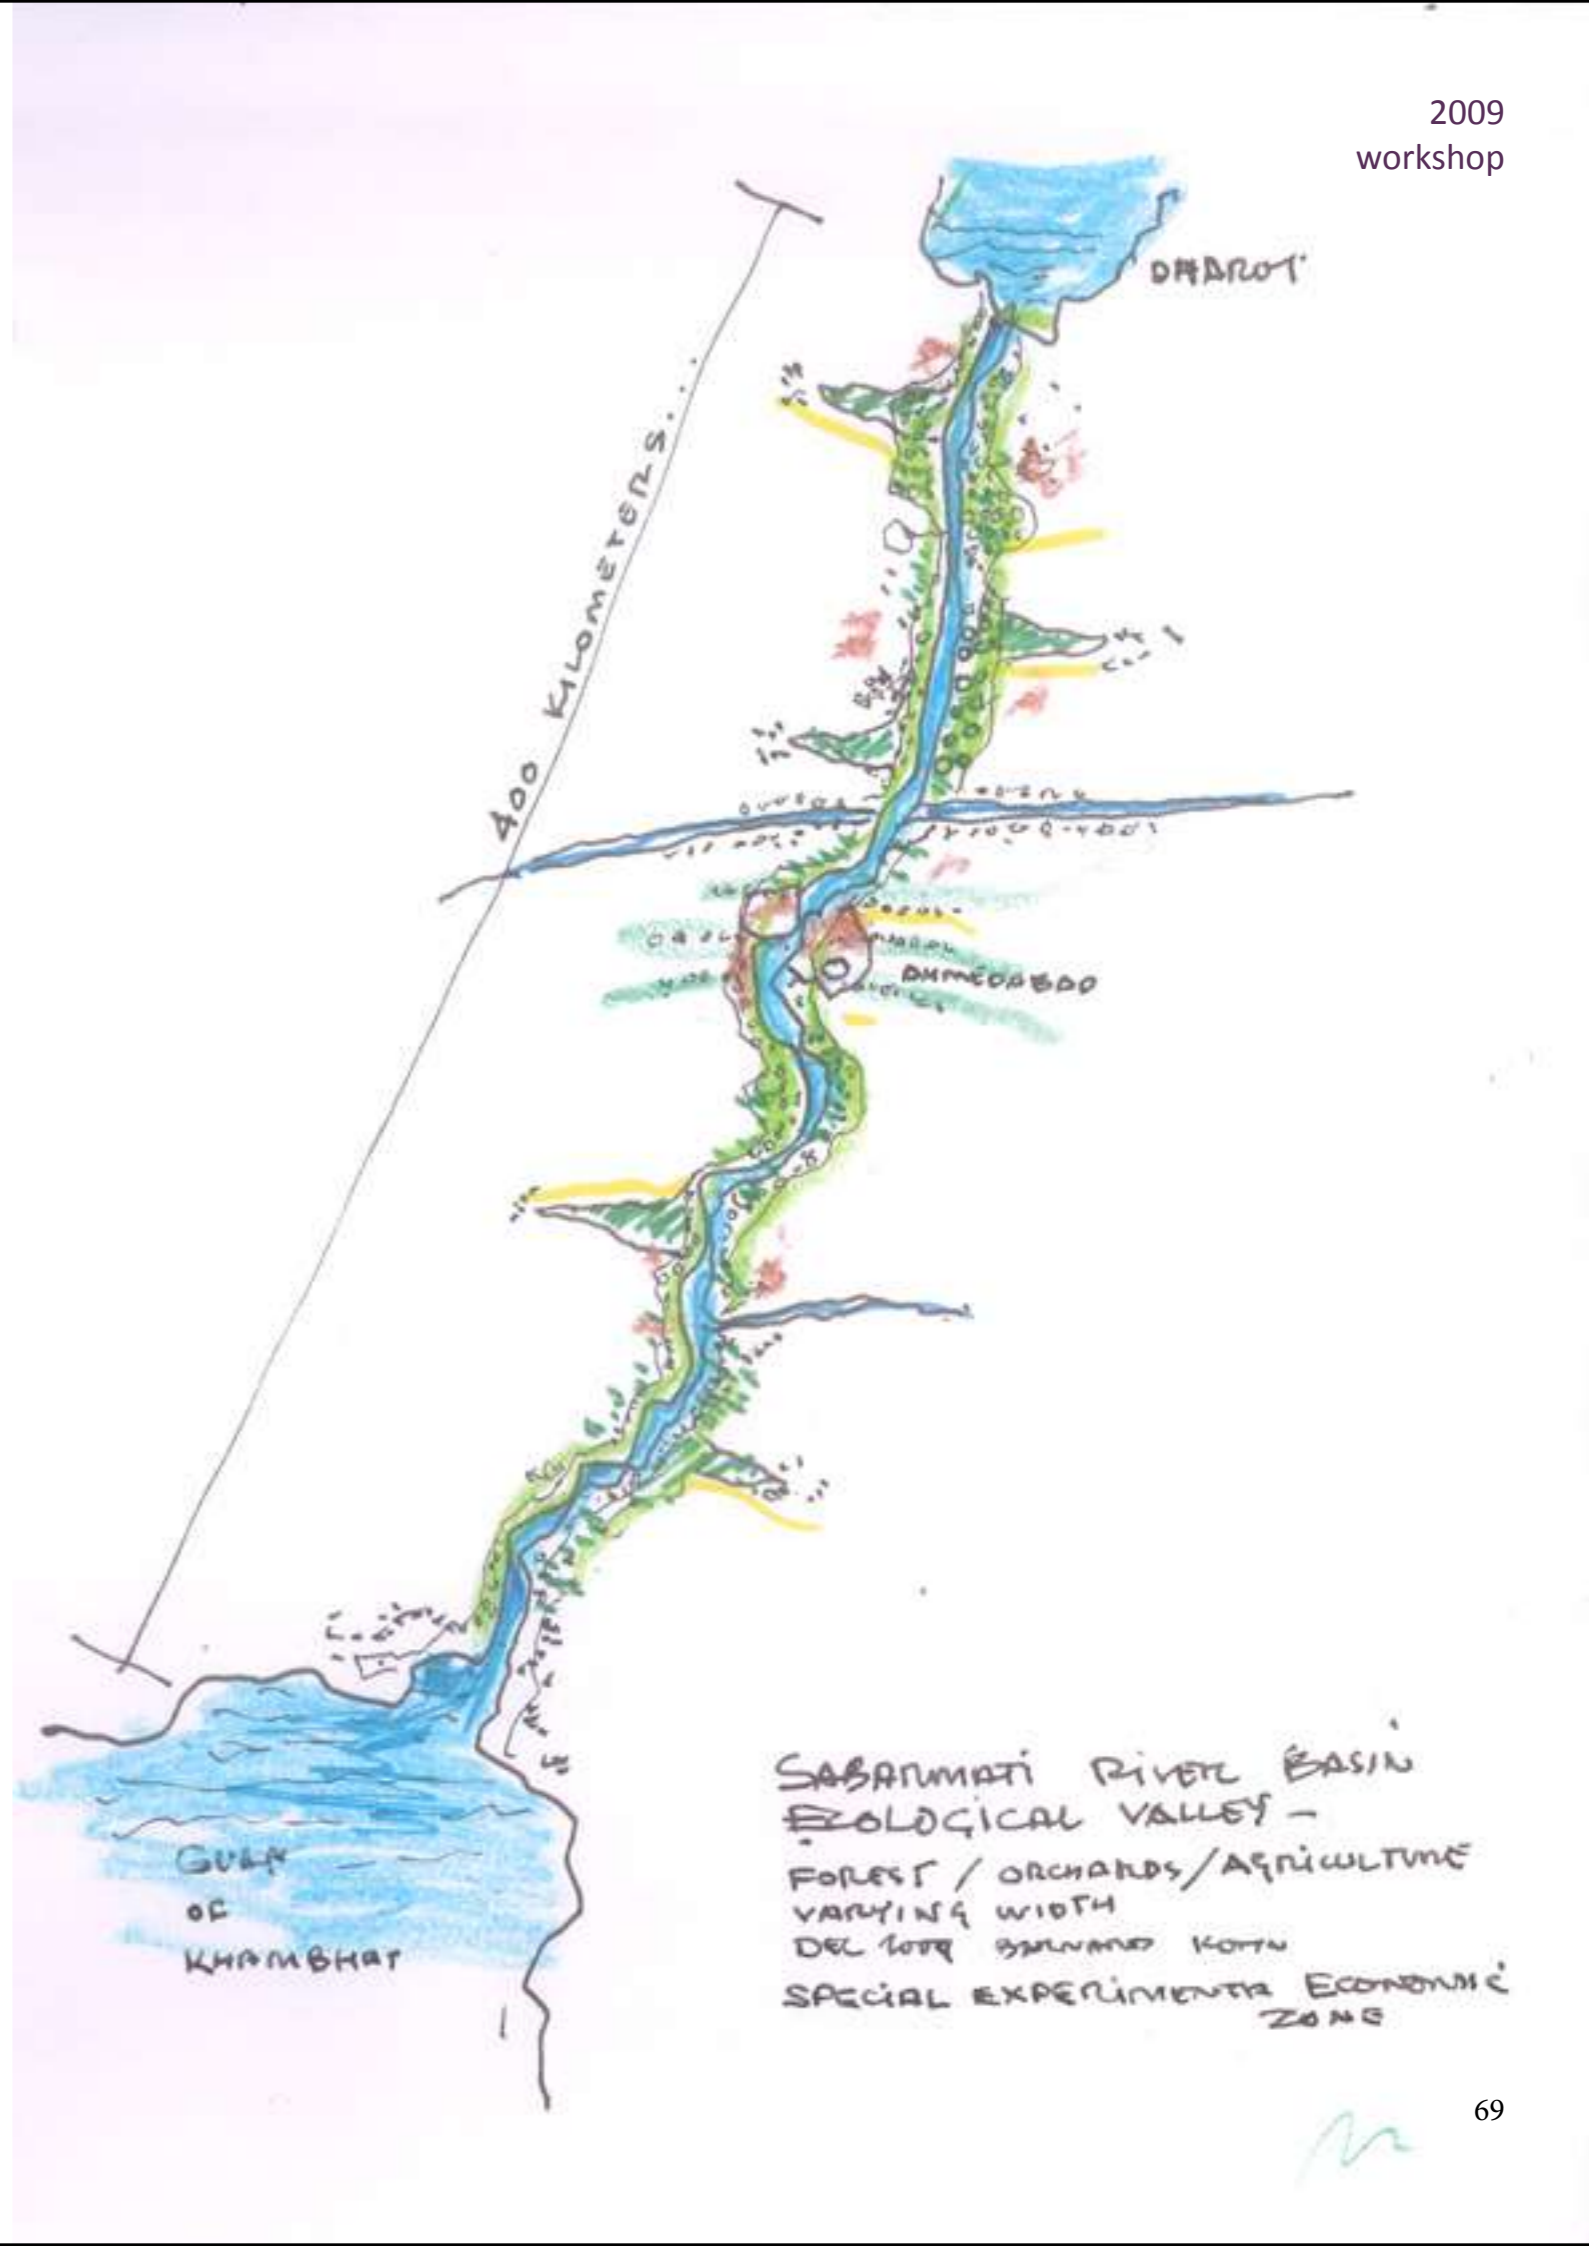 2009
workshop
DHAROI
400 KILOMETERS...
AHMEDABAD
GULF
OF
KHAMBHAT
SABARMATI RIVER BASIN
ECOLOGICAL VALLEY -
FOREST / ORCHARDS / AGRICULTURE
VARYING WIDTH
2009 BERNARD KOHN
SPECIAL EXPERIMENTA ECONOMIC
ZONE
69